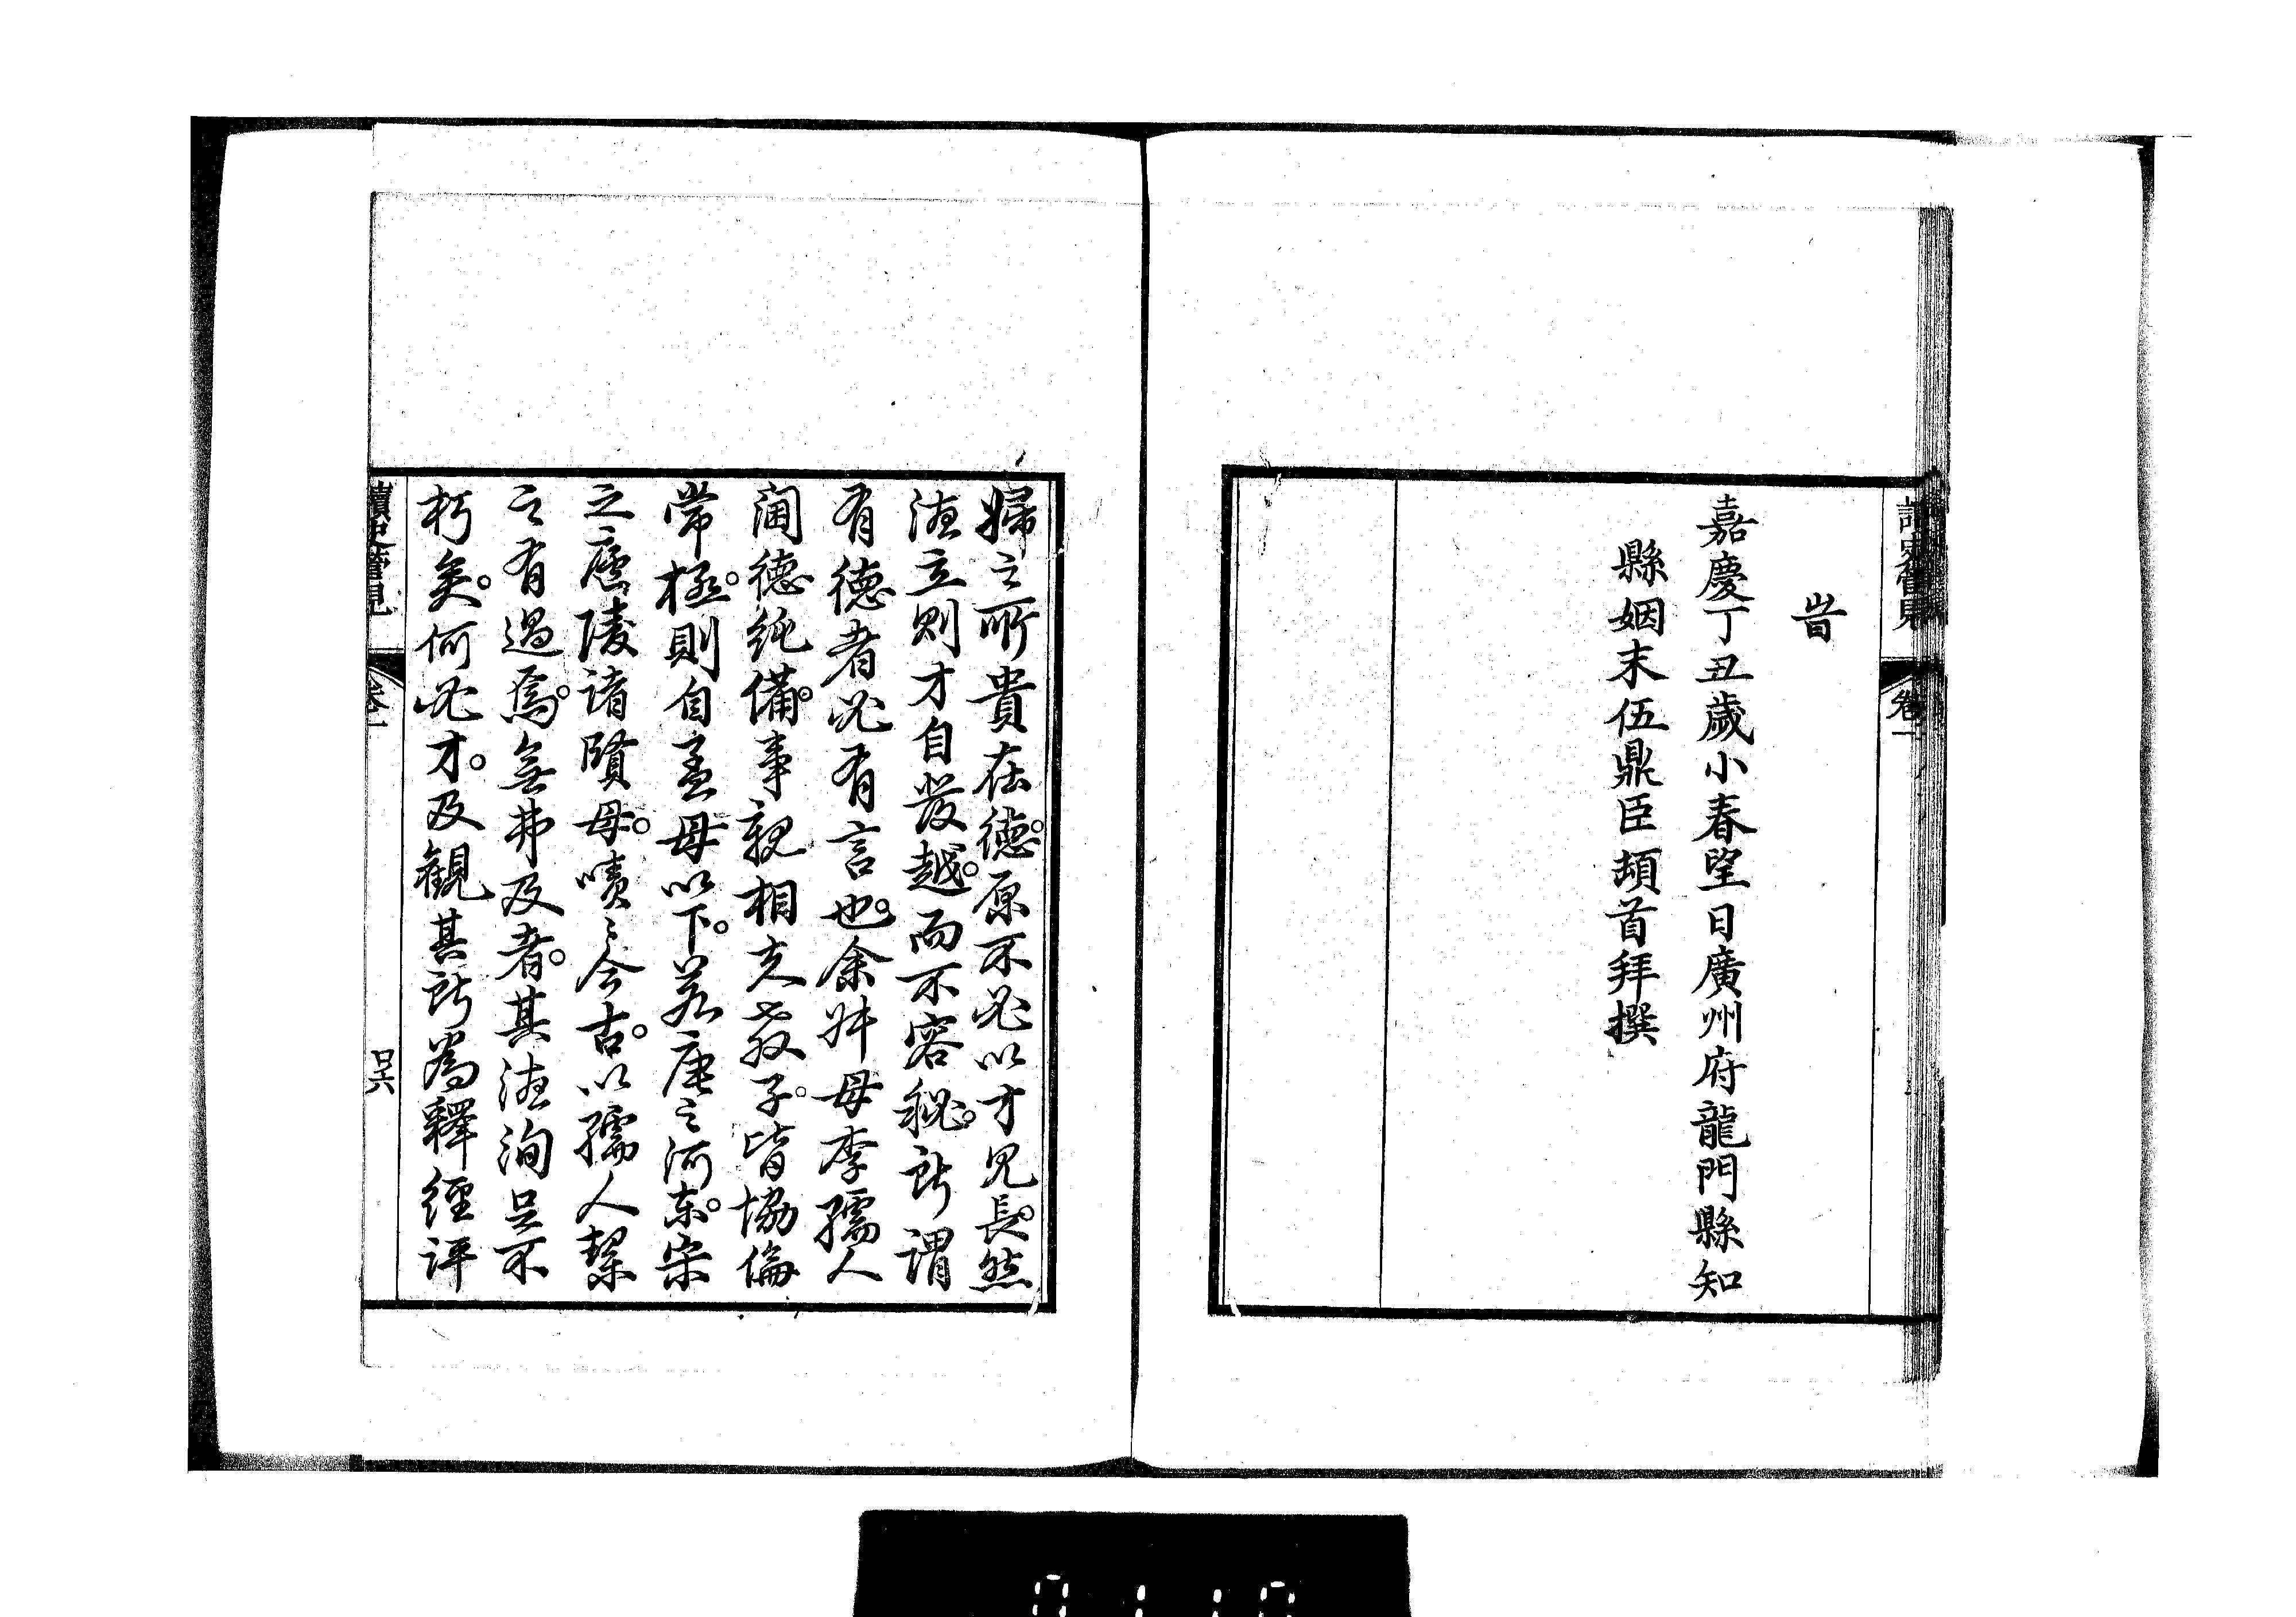 讀史管見 卷一
旹
嘉慶丁丑歲小春望日廣州府龍門縣知
縣姻末伍鼎臣頓首拜撰
婦之所貴在德。原不必以才見長。然
德立則才自發越。而不容秘。所謂
有德者必有言也。余母李孺人
閫德純備。事親相夫教子。皆協倫
常極。則自孟母以下。若唐之河東。宋
之廬陵諸賢母。嘖〻今古。以孺人絜
之有過焉。無弗及者。其德洵足不
朽矣。何必才。及觀其所為釋經評
讀史管見 卷一